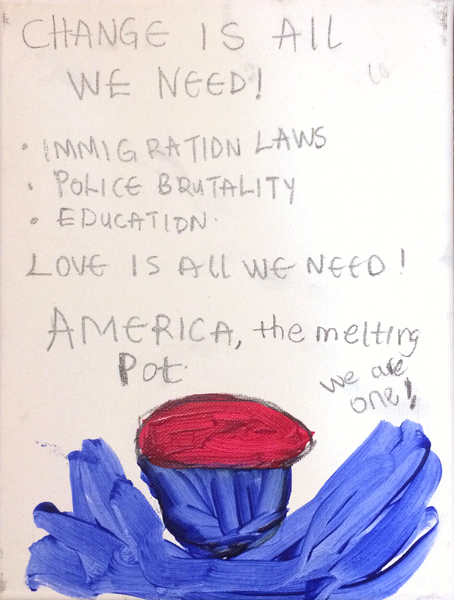 CHANGE IS All
WE NEED!
• IMMIGRATION LAWS
• POLICE BRUTALITY
• EDUCATION.
LOVE IS All WE NEED!
AMERICA, the melting
Pot.
we are
one!